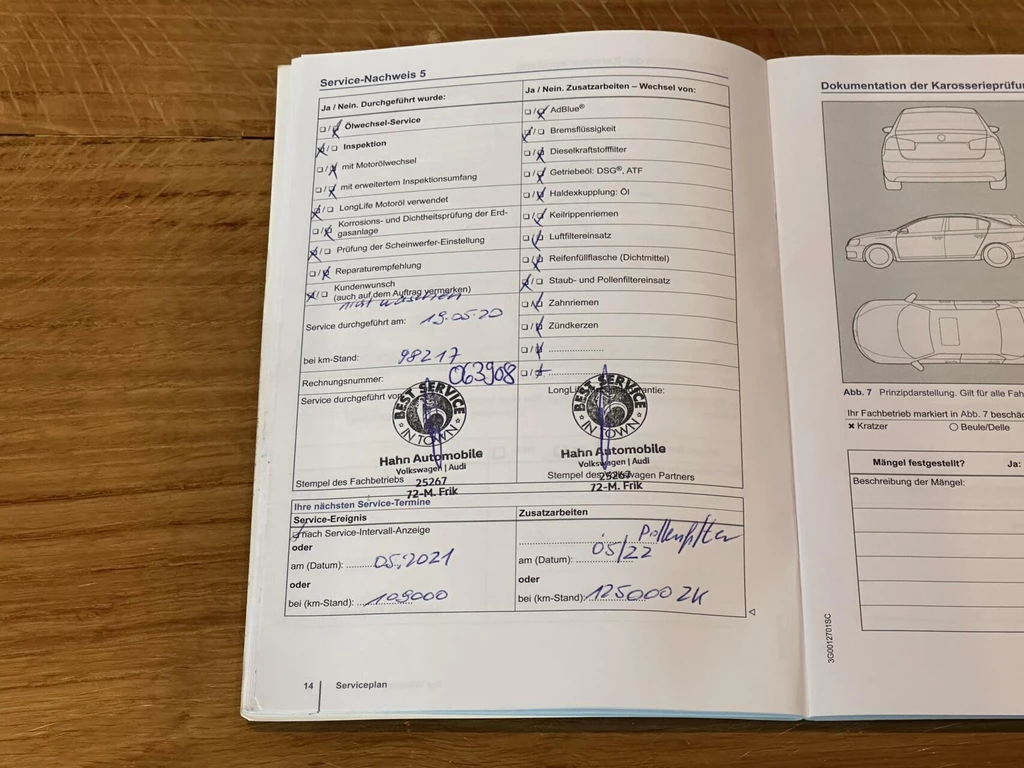 Service-Nachweis 5
Ja / Nein. Durchgeführt wurde:
Ölwechsel-Service
Inspektion
mit Motorölwechsel
mit erweitertem Inspektionsumfang
LongLife Motoröl verwendet
Korrosions- und Dichtheitsprüfung der Erd-
gasanlage
Prüfung der Scheinwerfer-Einstellung
Reparaturempfehlung
Kundenwunsch
(auch auf dem Auftrag vermerken)
nicht waschen
Service durchgeführt am: 19.05.20
bei km-Stand: 98217
Rechnungsnummer: 063908
Service durchgeführt von
BEST SERVICE IN TOWN
Hahn Automobile
Volkswagen | Audi
Stempel des Fachbetriebs 25267
72-M. Frik
Ja / Nein. Zusatzarbeiten – Wechsel von:
AdBlue®
Bremsflüssigkeit
Dieselkraftstofffilter
Getriebeöl: DSG®, ATF
Haldexkupplung: Öl
Keilrippenriemen
Luftfiltereinsatz
Reifenfüllflasche (Dichtmittel)
Staub- und Pollenfiltereinsatz
Zahnriemen
Zündkerzen
BEST SERVICE IN TOWN
Hahn Automobile
Volkswagen | Audi
Stempel des Volkswagen Partners
25267
72-M. Frik
Ihre nächsten Service-Termine
Service-Ereignis
nach Service-Intervall-Anzeige
oder
am (Datum): 05.2021
oder
bei (km-Stand): 109000
Zusatzarbeiten
Pollenfilter
am (Datum): 05/22
oder
bei (km-Stand): 125000 ZK
14 Serviceplan
Dokumentation der Karosserieprüfun
Abb. 7 Prinzipdarstellung. Gilt für alle Fah
Ihr Fachbetrieb markiert in Abb. 7 beschä
× Kratzer ○ Beule/Delle
Mängel festgestellt? Ja:
Beschreibung der Mängel:
3G0012701SC